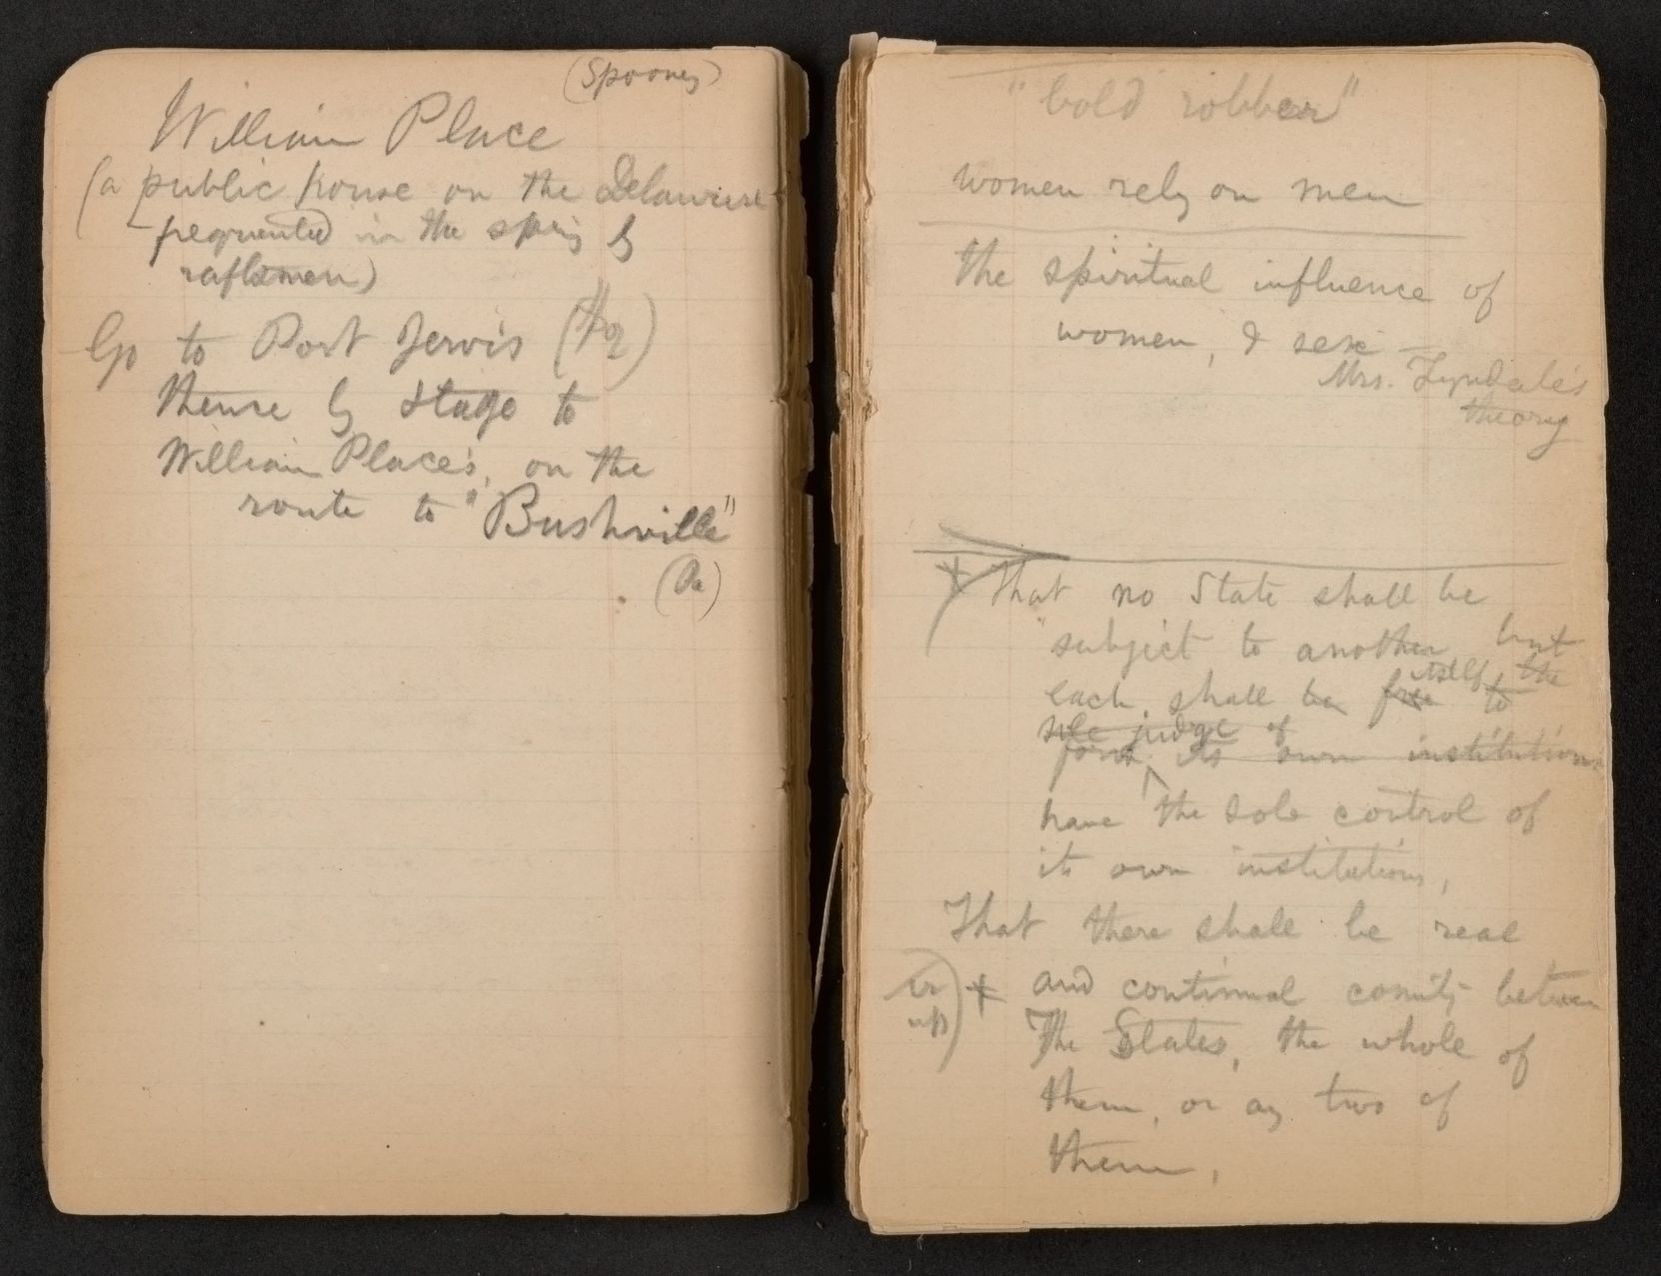 (Spooney)
William Place
(a public house on the Delaware
frequented in the spring by
raftsmen)
Go to Port Jervis ($2)
thence by stage to
William Place's, on the
route to "Bushville"
(Pa)
"bold robber"
women rely on men
the spiritual influence of
women, & sex —
Mrs. Tyndale's
theory
+ That no State shall be
subject to another but
itself the
each shall be free to
sole judge of
form its own institutions
have the sole control of
its own institutions,
That there shall be real
+ and continual comity between
up)
The States, the whole of
them, or any two of
them,